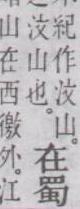 紀作汶山。
汶山也。
在蜀
山在西徼外。江